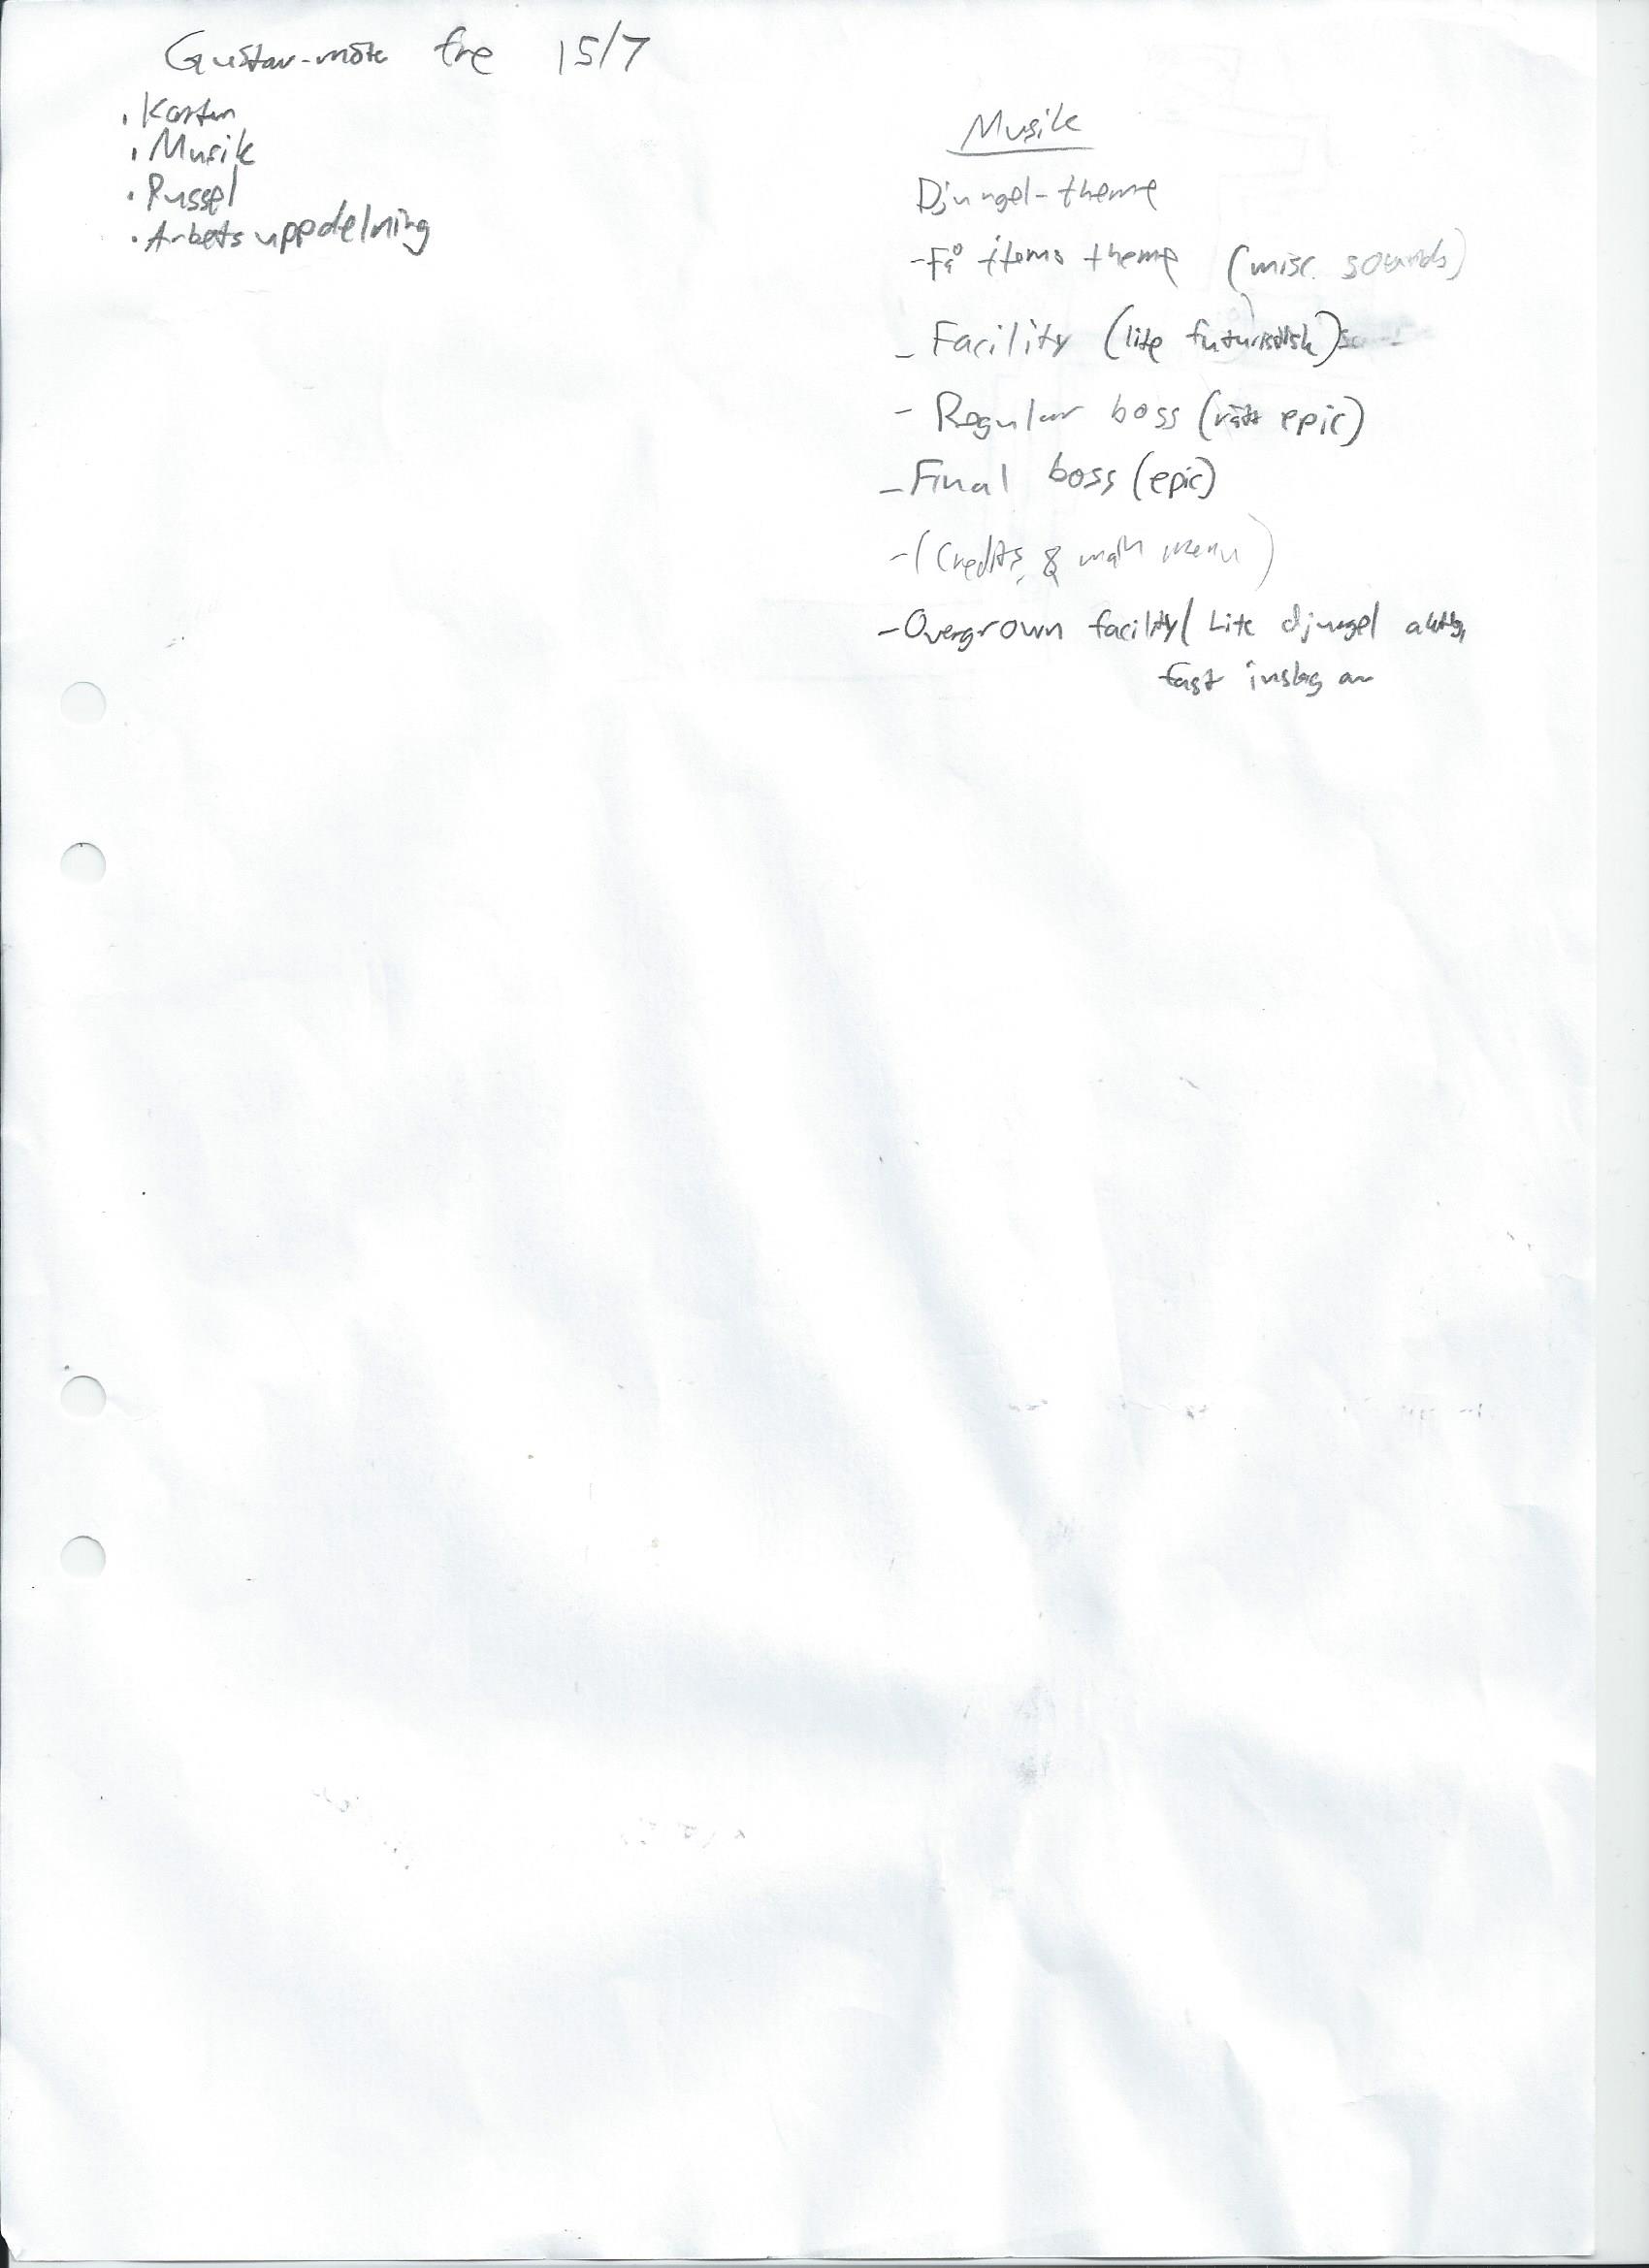 Gustav-möte fre 15/7
. Kartan
. Musik
. Pussel
. Arbetsuppdelning
Musik
Djungel-theme
-Få items theme (misc. sounds)
- Facility (lite futuristisk)
- Regular boss (rätt epic)
- Final boss (epic)
-(Credits & main menu)
-Overgrown facility/ Lite djungel aktig,
fast inslag av